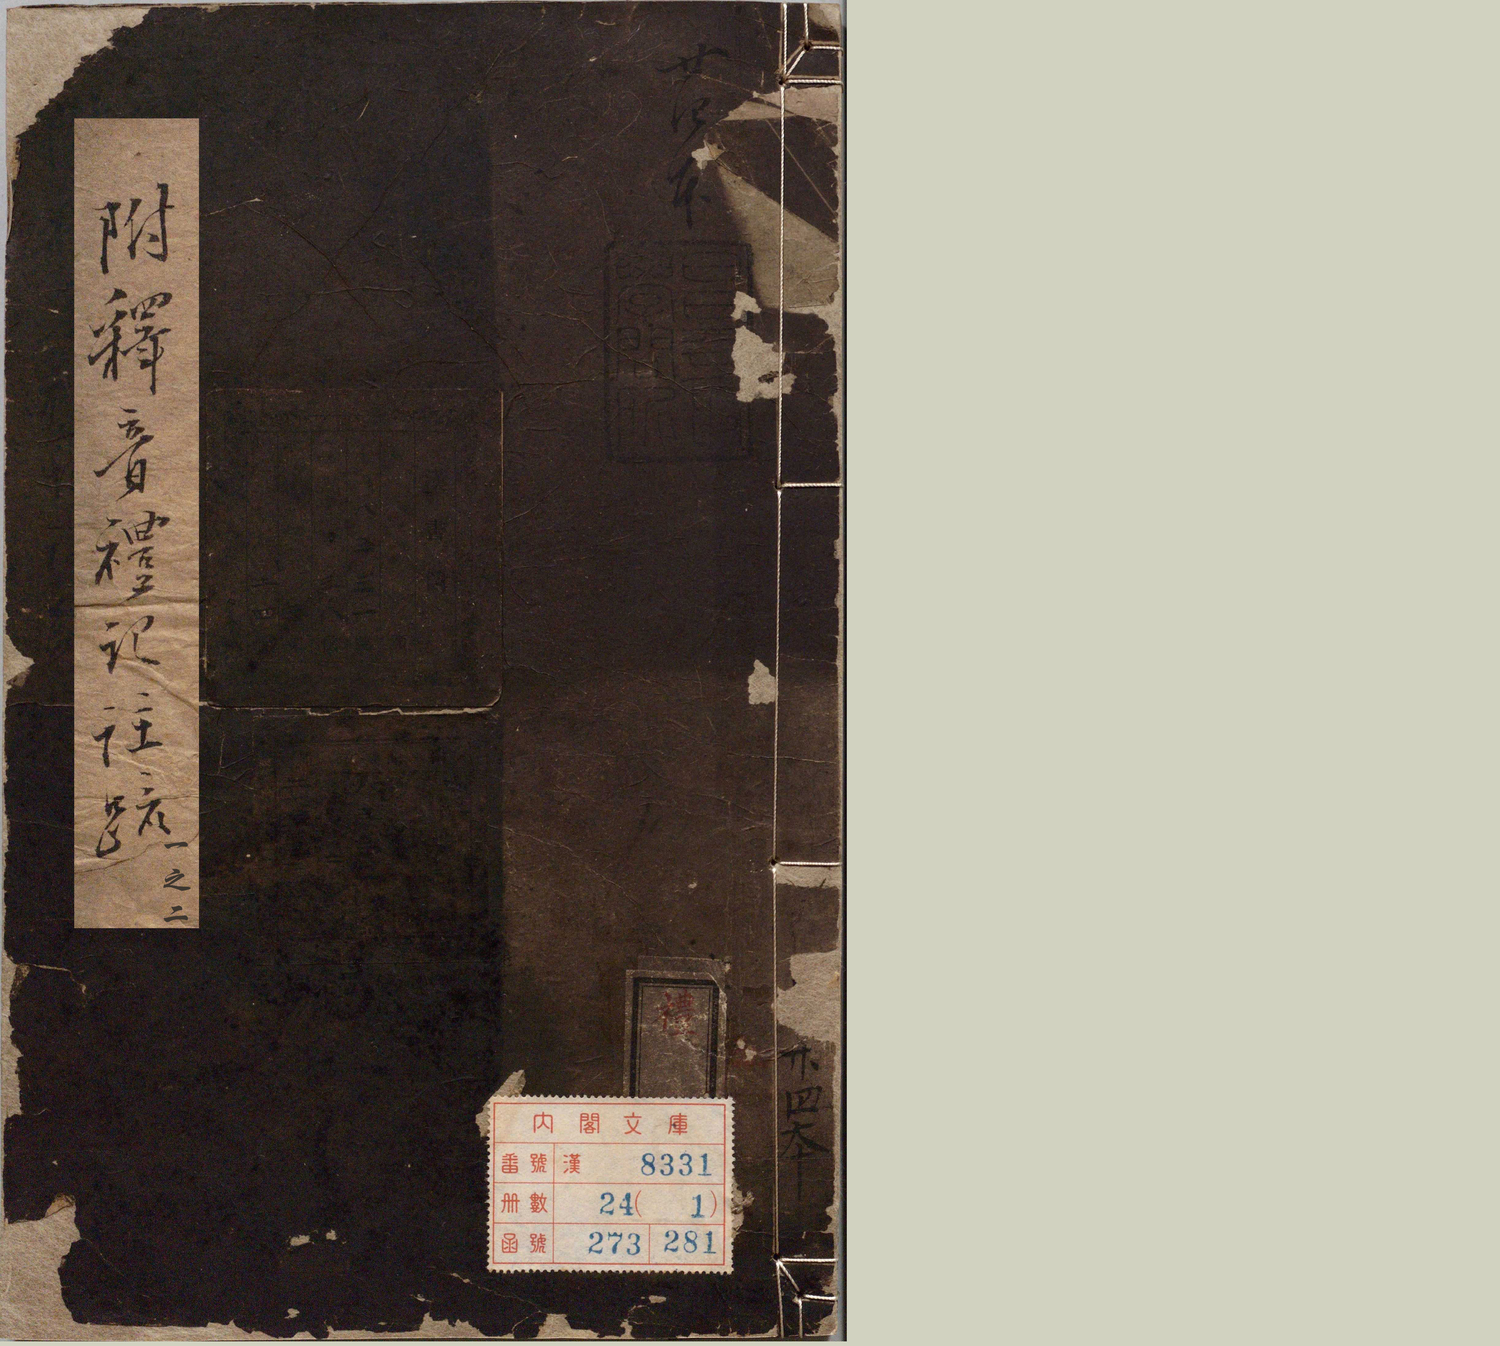 附釋音禮記註疏
一之二
禮
廿四本
內閣文庫
番號 漢 8331
冊數 24( 1)
函號 273 281